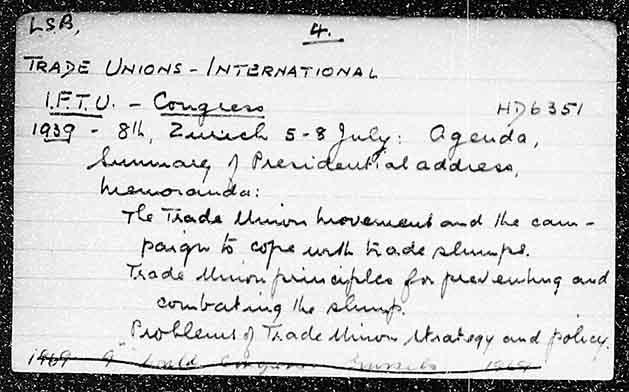 LSB,
4.
TRADE UNIONS - INTERNATIONAL
I.F.T.U. - Congress
HD6351
1939 - 8th, Zurich 5-8 July: Agenda,
Summary of Presidential address,
memoranda:
The Trade Union movement and the cam-
paign to cope with trade slumps.
Trade Union principles for preventing and
combating the slump.
Problems of Trade Union strategy and policy.
1969 World Congress Brussels 1969